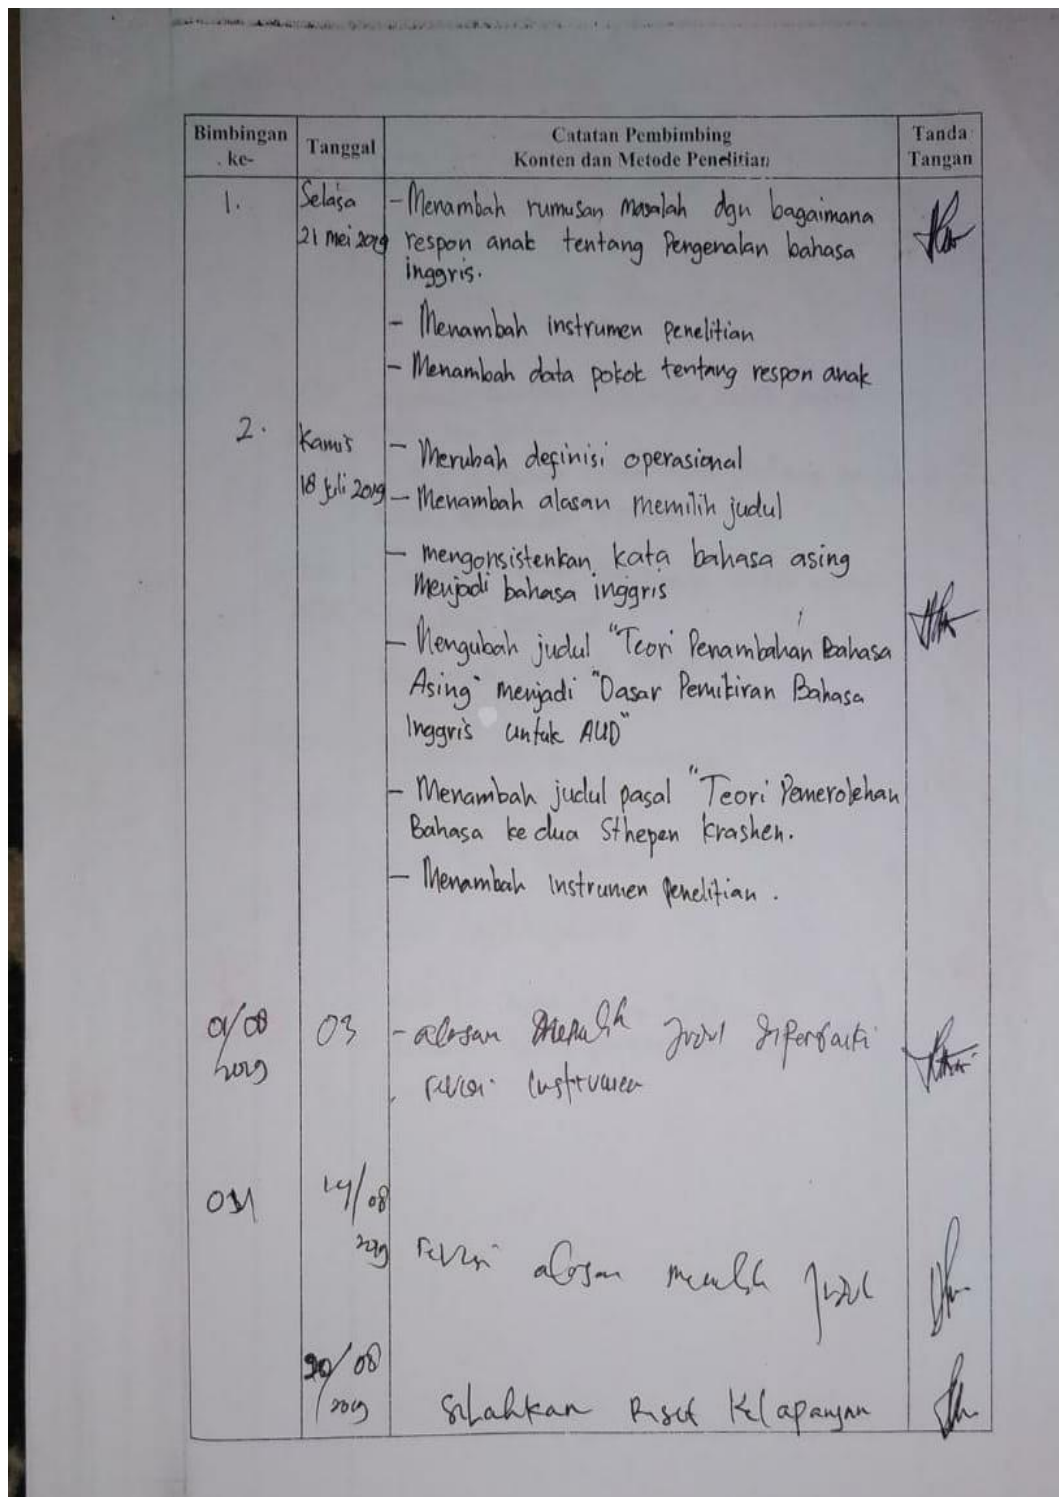 Bimbingan ke- Tanggal Catatan Pembimbing Konten dan Metode Penelitian Tanda Tangan
1. Selasa - Menambah rumusan masalah dgn bagaimana
21 Mei 2019 respon anak tentang Pengenalan bahasa
inggris.
- Menambah instrumen penelitian
- Menambah data pokok tentang respon anak
2. Kamis - Merubah definisi operasional
18 Juli 2019 - Menambah alasan memilih judul
- mengonsistenkan kata bahasa asing
Menjadi bahasa inggris
- Mengubah judul "Teori Penambahan Bahasa
Asing" menjadi "Dasar Pemikiran Bahasa
Inggris untuk AUD"
- Menambah judul pasal "Teori Pemerolehan
Bahasa ke dua Sthepen Krashen.
- Menambah Instrumen Penelitian.
01/08 03 - alasan memilih judul diperbaiki
2019 revisi instrumen
14/08
2019 revisi alasan memilih judul
20/08
2019 Silahkan Riset Kelapangan